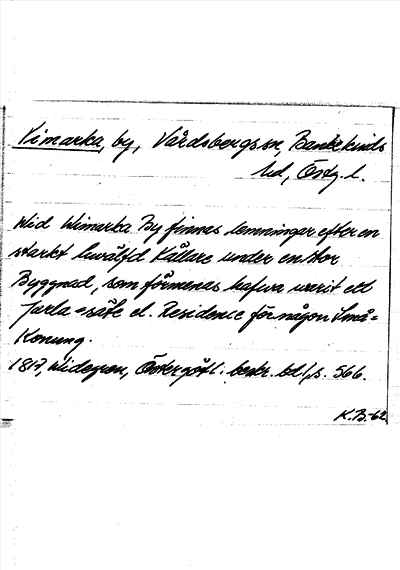 Vimarka, by, Vårdsbergs sn, Bankekinds
hd, Östg. l.
Wid Wimarka By finnes lemningar efter en
starkt hwälfd Källare under en stor
Byggnad, som förmenas hafwa warit ett
Jarla-säte el. Residence för någon Små-
Konung.
1817, Widegren, Östergötl. beskr. bd 1, s. 566.
K.B-62